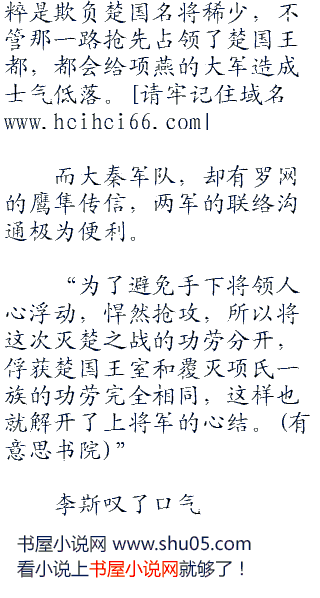 粹是欺负楚国名将稀少，不
管那一路抢先占领了楚国王
都，都会给项燕的大军造成
士气低落。[请牢记住域名
www.hcihci66.com|
而大秦军队，却有罗网
的鹰隼传信，两军的联络沟
通极为便利。
“为了避免手下将领人
心浮动，悍然抢攻，所以将
这次灭楚之战的功劳分开，
俘获楚国王室和覆灭项氏一
族的功劳完全相同，这样也
就解开了上将军的心结。(有
意思书院)”
李斯叹了口气
书屋小说网 www.shu05.com
看小说上书屋小说网就够了！